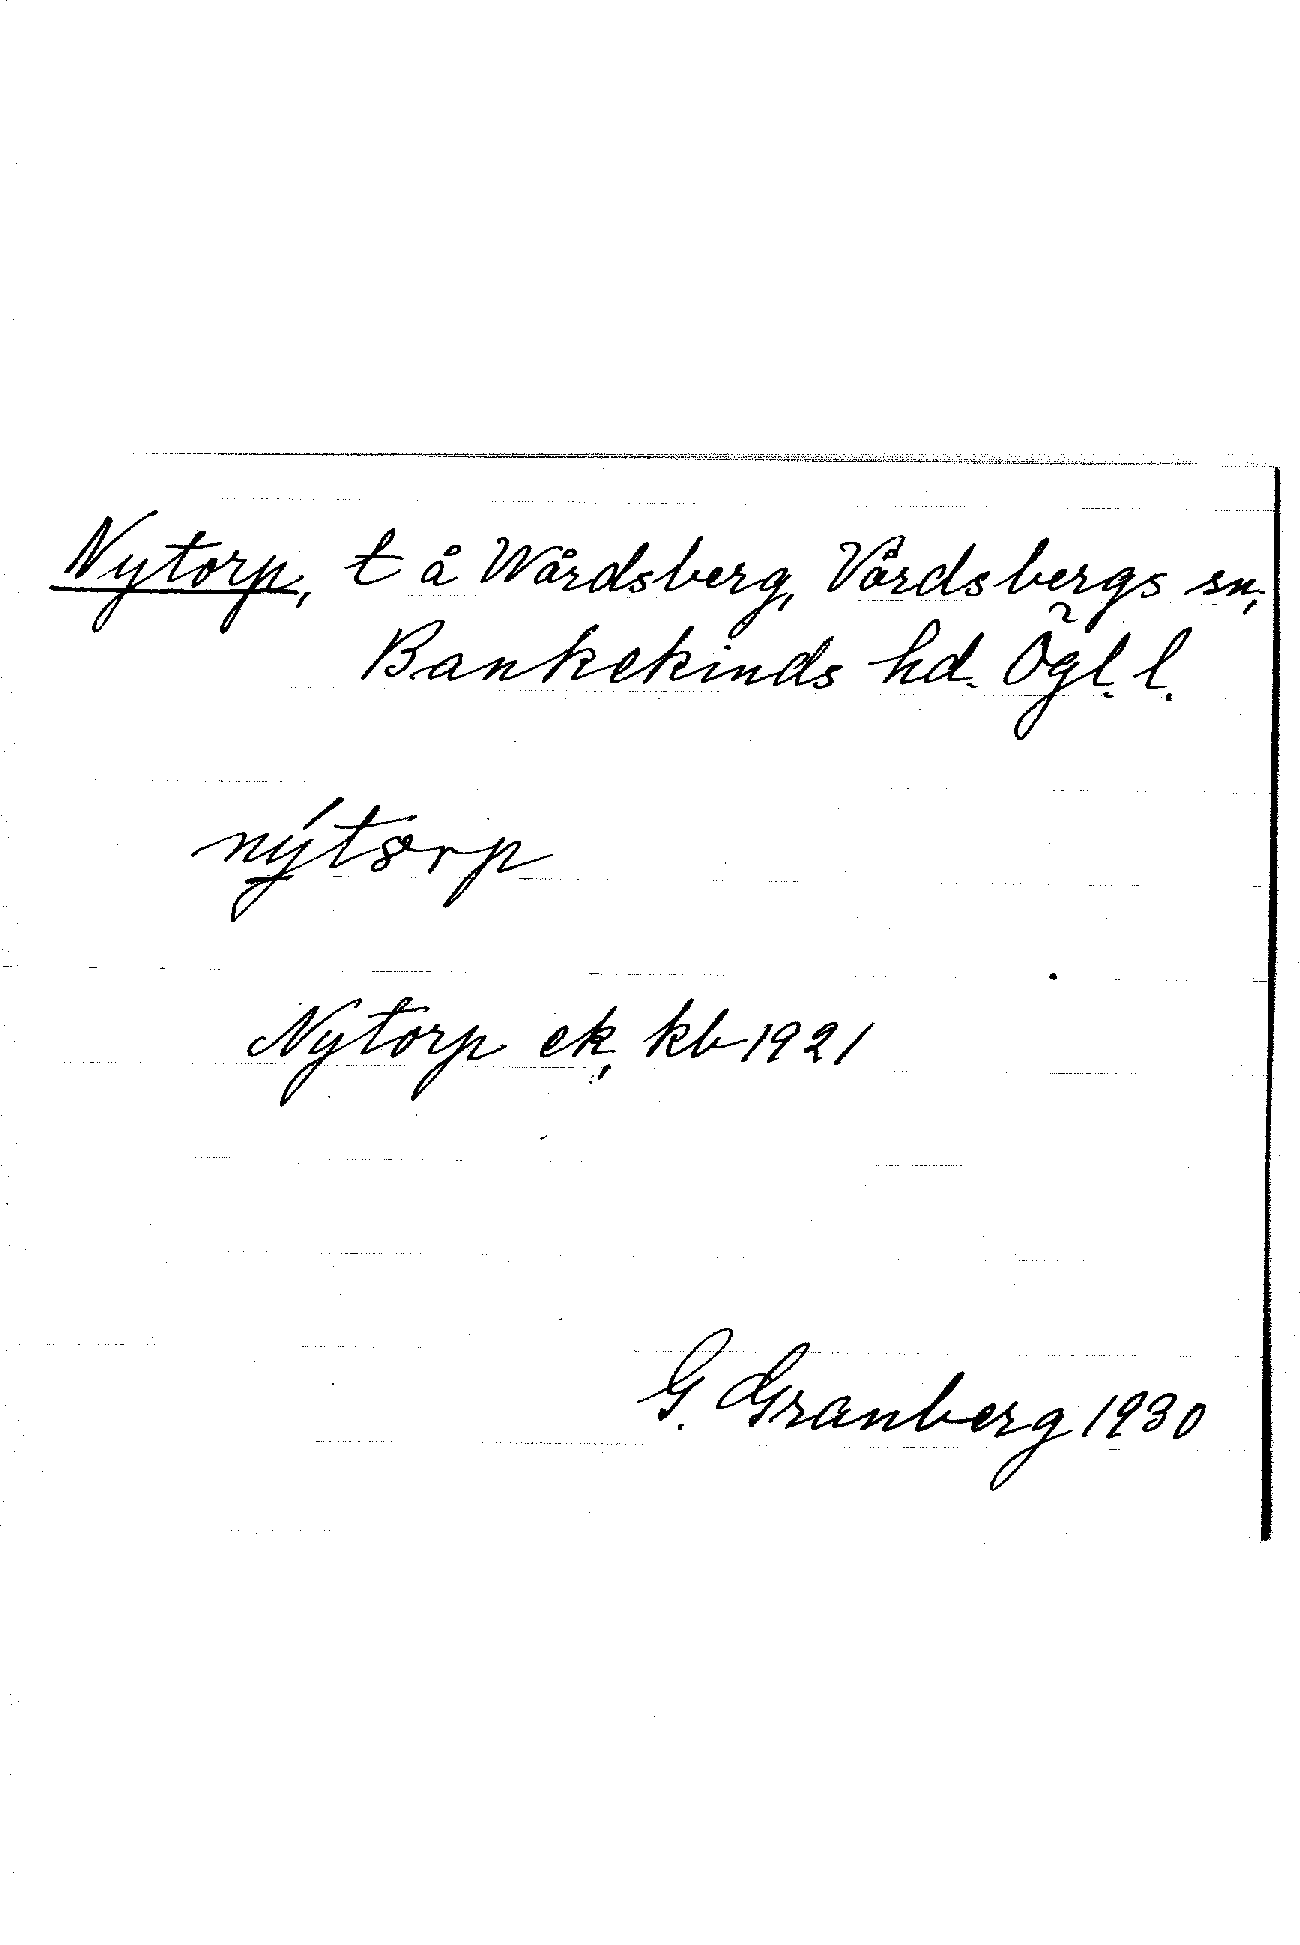 Nytorp, t å Wårdsberg, Vårdsbergs sn,
Bankekinds hd. Ögl. l.
nýtɷrp
Nytorp ek, kb 1921
G. Granberg 1930